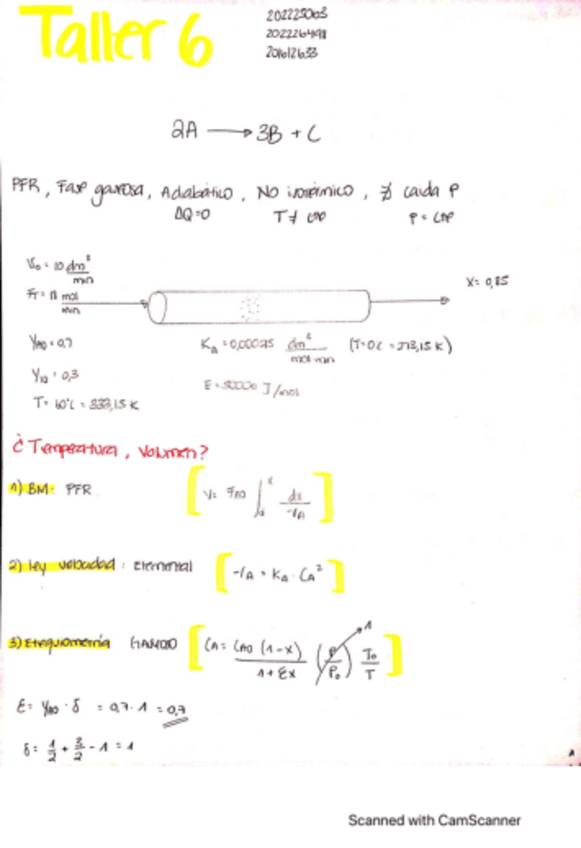 Taller 6
202225063
202226498
201612633
2A → 3B + C
PFR, Fase gaseosa, Adiabático, No isotérmico, ∄ caida P
ΔQ=0 T≠ cte P = cte
V₀ = 10 dm³/min
X= 0,85
Y_A0 = 0,7
K_A = 0,00025 dm³/mol·min (T=0C = 273,15 K)
Y_I0 = 0,3
E = 50000 J/mol
T= 60°C = 333,15 K
¿Temperatura, Volumen?
1) BM: PFR [V= F_A0 ∫₀ˣ dx/-r_A]
2) Ley velocidad: Elemental [-r_A = K_A · C_A²]
3) Estequiometría [C_A = C_A0 (1-x)/1+Ɛx (P/P₀) T₀/T] 1
Ɛ= Y_A0 · δ = 0,7 · 1 = 0,7
δ= 1/2 + 3/2 - 1 = 1
1
Scanned with CamScanner